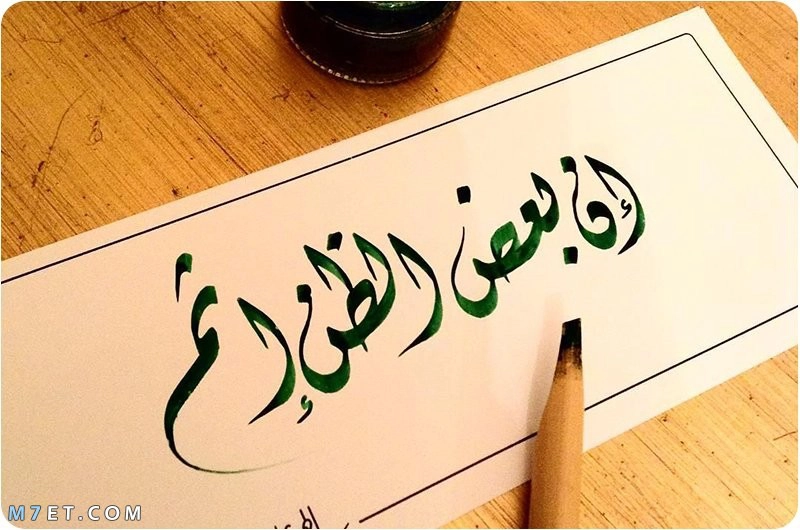 إن بعض الظن إثم
M7ET.COM